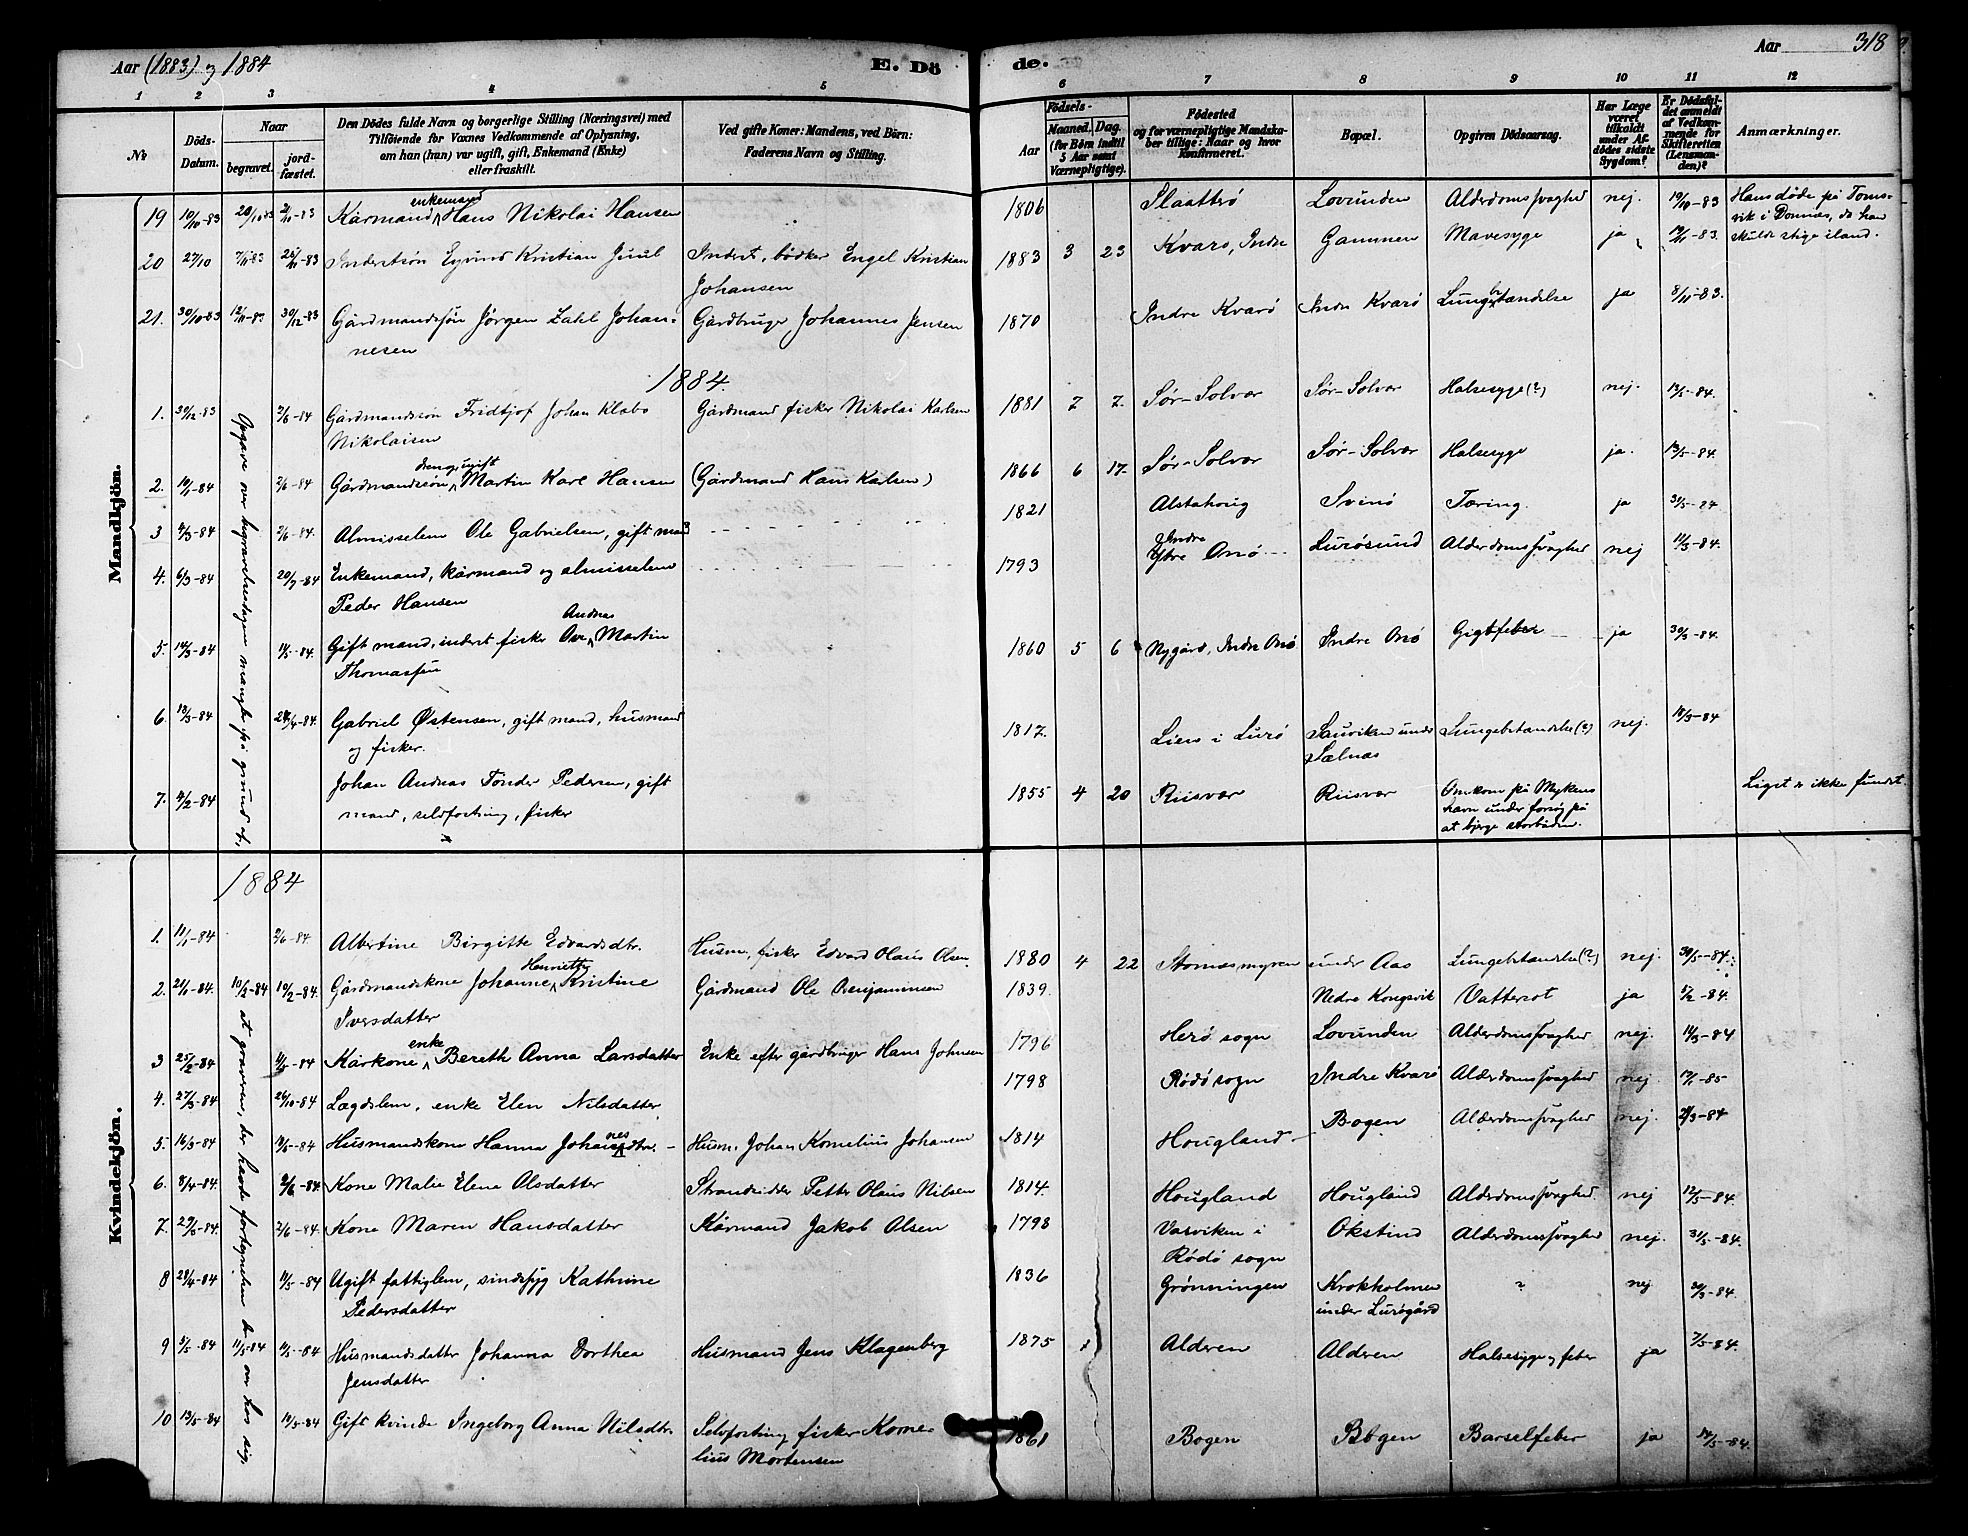 Aar (1883) og 1884
E. Dö
de.
Aar 318
1 2 3 4 5 6 7 8 9 10 11 12
No.
Döds-
Datum.
Naar
begravet.
jord-
fæstet.
Den Dödes fulde Navn og borgerlige Stilling (Næringsvei) med
Tilföiende for Voxnes Vedkommende af Oplysning,
om han (hun) var ugift, gift, Enkemand (Enke)
eller fraskilt.
Ved gifte Koner: Mandens, ved Börn:
Faderens Navn og Stilling.
Födsels-
Aar
Maaned. Dag.
(for Börn indtil
5 Aar samt
Værnepligtige).
Födested
og for værnepligtige Mandska-
ber tillige: Naar og hvor
konfirmeret.
Bopæl.
Opgiven Dödsaarsag.
Har Læge
været
tilkaldt
under Af-
dödes sidste
Sygdom?
Er Dödsfal-
det anmeldt
af Vedkom-
mende for
Skifteretten
(Lensman-
den)?
Anmærkninger.
Mandkjön.
19 10/10-83 20/10 83 2/11-83 Kårmand, enkemand Hans Nikolai Hansen 1806 Slaatterø Lovunden Alderdomssvaghed nej. 19/10-83 Han døde på Toms-
vik i Dønnes, da han
skulde stige iland.
20 27/10 7/11 83 25/11-83 Inderstsøn Eyvind Kristian Juul Inderst, bødker Engel Kristian
Johansen 1883 3 23 Kvarø, Indre Gammen Mavesyge ja 12/11-83.
21. 30/10-83 12/11-83 30/12-83 Gårdmandssøn Jørgen Zahl Johan-
nesen Gårdbruger Johannes Jensen 1870 Indre Kvarø Indre Kvarø Lungebetændelse ja 8/11-83.
1884.
1. 30/12-83 2/6-84 Gårdmandssøn Fridtjof Johan Klabo
Nikolaisen Gårdmand fisker Nikolai Karlsen 1881 7 7. Sør-Solvær Sør-Solvær Halsesyge (?) nej. 13/5-84.
2. 19/1-84 2/6-84 Gårdmandssøn, dreng, ugift Martin Karl Hansen (Gårdmand Hans Karlsen) 1866 6 17. Sør-Solvær Sør-Solvær Halsesyge ja. 13/5-84.
3 4/3-84 2/6-84. Almisselem Ole Gabrielsen, gift mand 1821 Alstahoug Svinø Tæring. ja 31/5-84
4. 6/3-84 20/7-84 Enkemand, kårmand og almisselem
Peder Hansen 1793 Indre
Ytre Onø Lurøsund Alderdomssvaghed nej 11/3-84.
5. 14/3-84 11/5-84. Gift mand, inderst fisker Ove Andreas Martin
Thomassen 1860 5 6 Nygård, Indre Onø Indre Onø Gigtfeber ja 30/3-84.
6. 13/3-84 24/4-84. Gabriel Østensen, gift mand, husmand
og fisker. 1817. Lien i Lurø Sauviken under
Selnæs Lungebetændelse (?) nej. 18/3-84
7. 4/2-84 Johan Andreas Tonder Pedersen, gift
mand, selvforsørg, fisker 1855 4 20 Riisvær Riisvær Omkom på Mykens
havn under forsøg på
at bjerge storbåden. Liget er ikke fundet.
Opgave over begravelsesdagen mangler på grund af, at graveren, der havde fortegnelsen derover hos sig,
Kvindekjön.
1884
1. 11/1-84 2/6-84 Albertine Birgitte Edvardsdtr. Husm., fisker Edvard Olaus Olsen. 1880 4 22 Stornesmyren under Aas Lungebetændelse (?) nej. 30/5-84.
2. 21/1-84. 10/2-84 10/2-84. Gårdmandskone Johanne Henriette Kristine
Iversdatter Gårdmand Ole Benjaminsen 1839. Nedre Kongsvik Vattersot ja 5/2-84.
3 25/2-84 11/5-84 Kårkone, enke Bereth Anna Larsdatter Enke efter gårdbruger Hans Johnsen 1796 Herø sogn Lovunden Alderdomssvaghed nej. 14/3-84
4. 27/3-84 26/10-84 Lægdslem, enke Elen Nilsdatter. 1798 Rødø sogn Indre Kvarø Alderdomssvaghed nej. 12/1-85
5. 16/3-84 11/5-84 Husmandskone Hanna Johannesdtr. Husm. Johan Kornelius Johansen 1814 Hougland Bogen Alderdomssvaghed nej. 21/3-84
6. 8/4-84. 2/6-84. Kone Malie Elena Olsdatter Strandsidder Petter Olaus Nilsen 1814. Hougland Hougland Alderdomssvaghed. nej 12/5-84.
7. 29/5-84. 2/6-84. Kone Maren Hansdatter Kårmand Jakob Olsen 1798 Vasviken i
Rødø sogn Okstind Alderdomssvaghed nej. 31/5-84.
8 28/4-84 11/5-84 Ugift fattiglem, sindssyg Kathrine
Pedersdatter 1836 Grønningen Krokholmen
under Lurøgård ? nej 30/3-84.
9 5/5-84 11/5-84 11/5-84 Husmandsdatter Johanna Dorthea
Jensdatter Husmand Jens Klagenberg 1875 Alderen Alderen Halsesyge og feber ja 7/5-84.
10 13/5-84 19/5-84 Gift kvinde Ingeborg Anna Nilsdtr. Selvforsørg fisker Korne-
lius Mortensen 1861 Bogen Bogen Barselfeber ja 17/5-84.